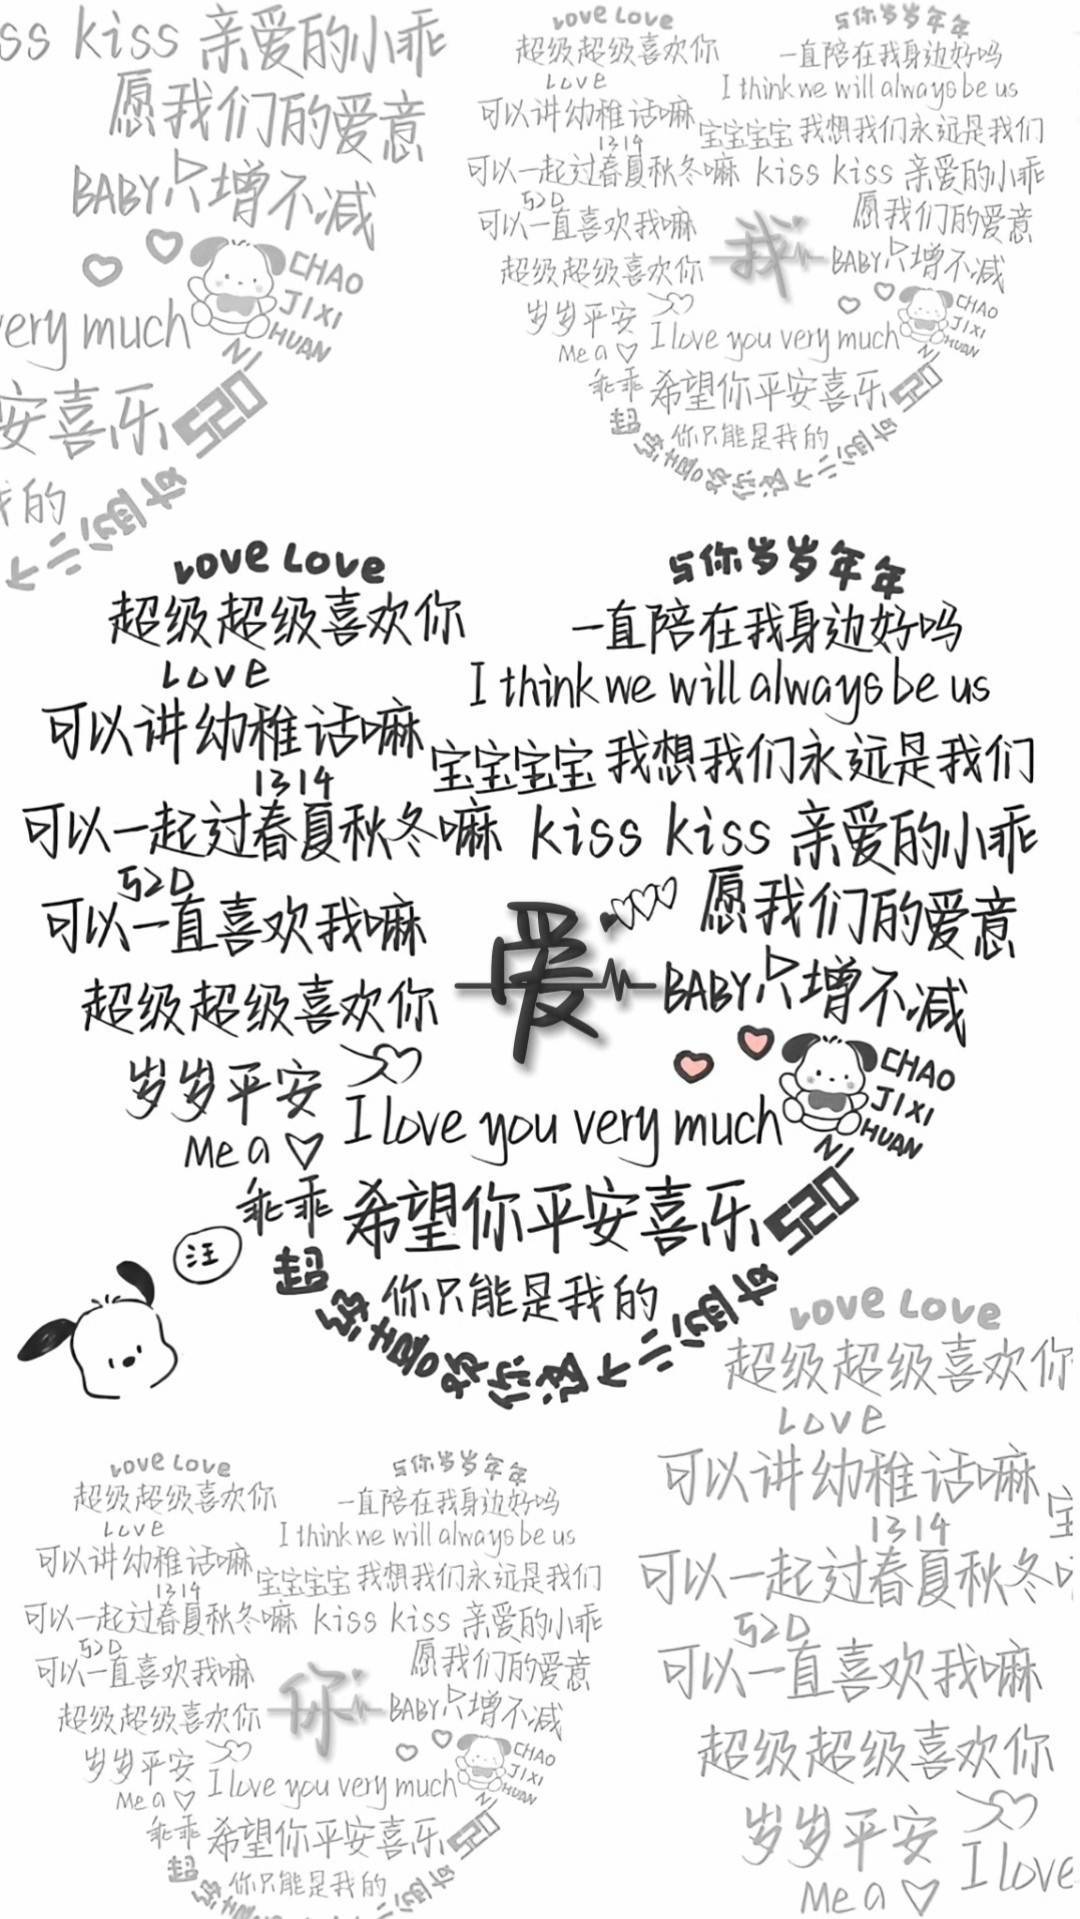 ss kiss 亲爱的小乖
愿我们的爱意
BABY只增不减
CHAO
JIXI
HUAN
NI
very much
安喜乐 520
我的
LOVE LOVE
与你岁岁年年
超级超级喜欢你
一直陪在我身边好吗
LOVE
I think we will always be us
可以讲幼稚话嘛
宝宝宝宝 我想我们永远是我们
1314
可以一起过春夏秋冬嘛 kiss kiss 亲爱的小乖
520
愿我们的爱意
可以一直喜欢我嘛
我
BABY只增不减
超级超级喜欢你
CHAO
JIXI
HUAN
NI
岁岁平安
I love you very much
Me a
乖乖 希望你平安喜乐 520
你只能是我的
LOVE LOVE
与你岁岁年年
超级超级喜欢你
一直陪在我身边好吗
LOVE
I think we will always be us
可以讲幼稚话嘛
宝宝宝宝 我想我们永远是我们
1314
可以一起过春夏秋冬嘛 kiss kiss 亲爱的小乖
520
愿我们的爱意
可以一直喜欢我嘛
爱
BABY只增不减
超级超级喜欢你
CHAO
JIXI
HUAN
NI
岁岁平安
I love you very much
Me a
乖乖 希望你平安喜乐 520
汪
你只能是我的
超级喜欢你这个
LOVE LOVE
超级超级喜欢你
LOVE
可以讲幼稚话嘛
1314
可以一起过春夏秋冬
520
可以一直喜欢我嘛
超级超级喜欢你
岁岁平安
I love
Me a
LOVE LOVE
与你岁岁年年
超级超级喜欢你
一直陪在我身边好吗
LOVE
I think we will always be us
可以讲幼稚话嘛
宝宝宝宝 我想我们永远是我们
1314
可以一起过春夏秋冬嘛 kiss kiss 亲爱的小乖
520
愿我们的爱意
可以一直喜欢我嘛
你
BABY只增不减
超级超级喜欢你
CHAO
JIXI
HUAN
NI
岁岁平安
I love you very much
Me a
乖乖 希望你平安喜乐 520
你只能是我的